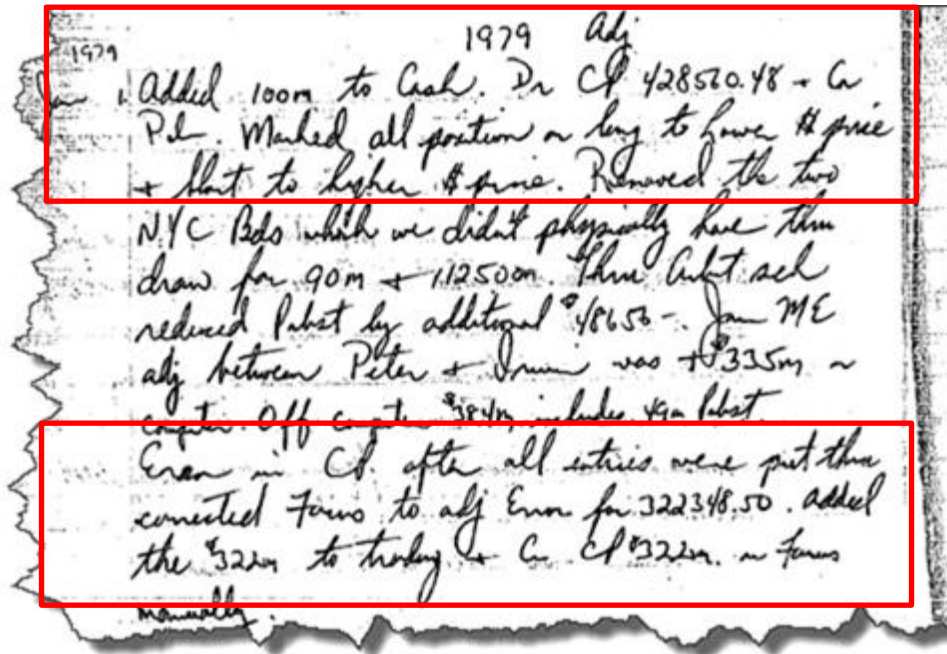 1979 Adj
1979
Jan 1 Added 100m to Cash. Dr CP 428560.48 + Cr
Marked all position on long to lower # price
+ short to higher # price. Removed the two
NYC Bds which we didn't physically have thru
draw for 90m + 112500m. Thru Cubt sed
reduced Pabst by additional $48650-. Jan ME
adj between Peter + Irwin was + $335m on
computer. Off computer $384m includes 49m Pabst
Error in CP after all entries were put thru
corrected to adj Error for 322348.50. added
the $322m to trading + Cr CP $322m. in
manually.